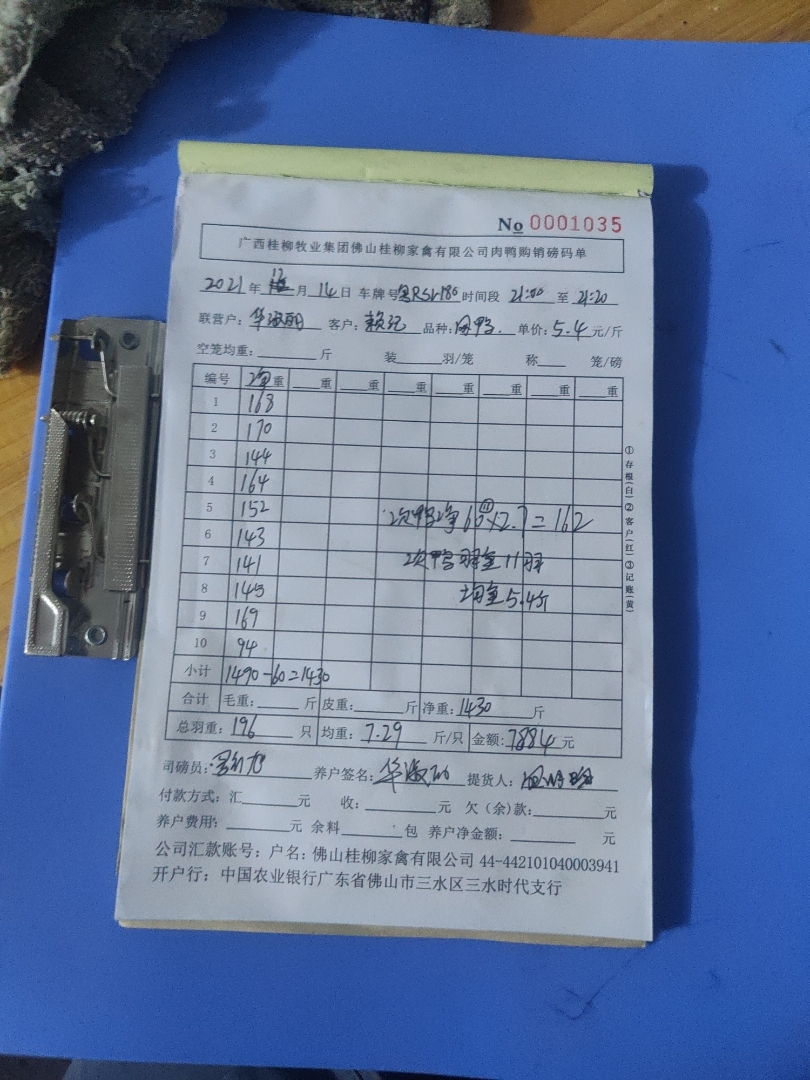 No 0001035
广西桂柳牧业集团佛山桂柳家禽有限公司肉鸭购销磅码单
2021年 12月 14日 车牌号 时间段 21:00 至 21:20
联营户: 客户: 品种: 单价: 5.4 元/斤
空笼均重: 斤 装 羽/笼 称 笼/磅
编号 净重 重 重 重 重 重 重 重
1 168
2 170
3 144
4 164
5 152
次鸭净60×2.7=162
6 143
7 141
次鸭羽重11羽
8 145
均重5.4斤
9 169
10 94
小计 1490-60=1430
合计 毛重: 斤 皮重: 斤 净重: 1430 斤
总羽重: 196 只 均重: 7.29 斤/只 金额: 7884 元
司磅员: 养户签名: 提货人:
付款方式: 汇 元 收: 元 欠(余)款: 元
养户费用: 元 余料 包 养户净金额: 元
公司汇款账号: 户名: 佛山桂柳家禽有限公司 44-442101040003941
开户行: 中国农业银行广东省佛山市三水区三水时代支行
①存根(白)②客户(红)③记账(黄)